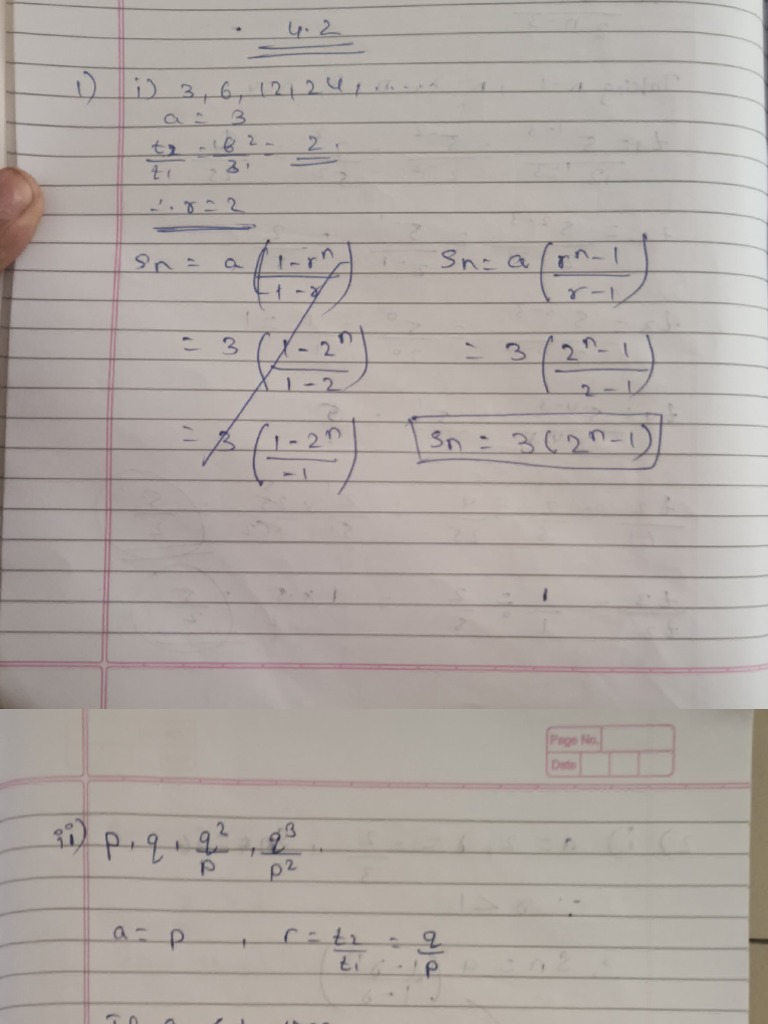 4.2
1) i) 3, 6, 12, 24, ......
a = 3
t2/t1 = 6 2/3 1 = 2
∴ r = 2
Sn = a (1-r^n / 1-r) Sn = a (r^n-1 / r-1)
= 3 (1-2^n / 1-2) = 3 (2^n-1 / 2-1)
= 3 (1-2^n / -1) Sn = 3(2^n-1)
Page No.
Date
ii) p, q, q^2/p, q^3/p^2.
a = p , r = t2/t1 = q/p